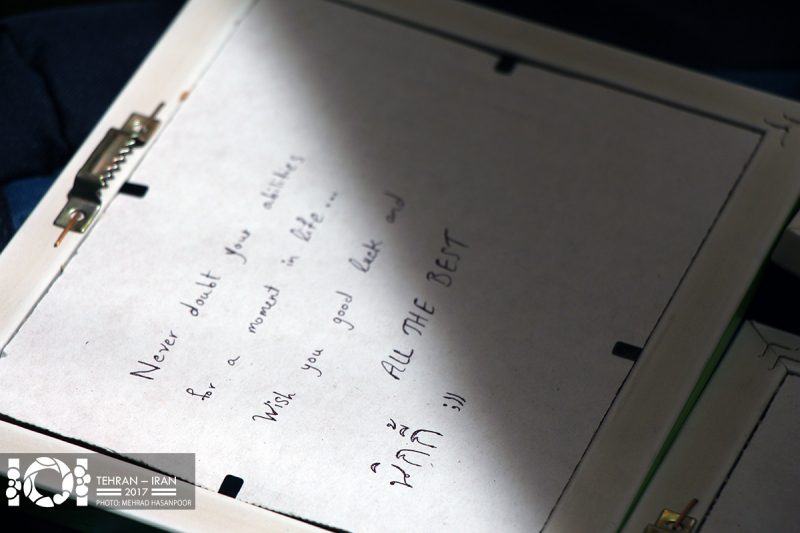 Never doubt your abilities
for a moment in life...
Wish you good luck and
ALL THE BEST
นิกกี้ :)))
TEHRAN – IRAN
2017
PHOTO: MEHRAD HASANPOOR